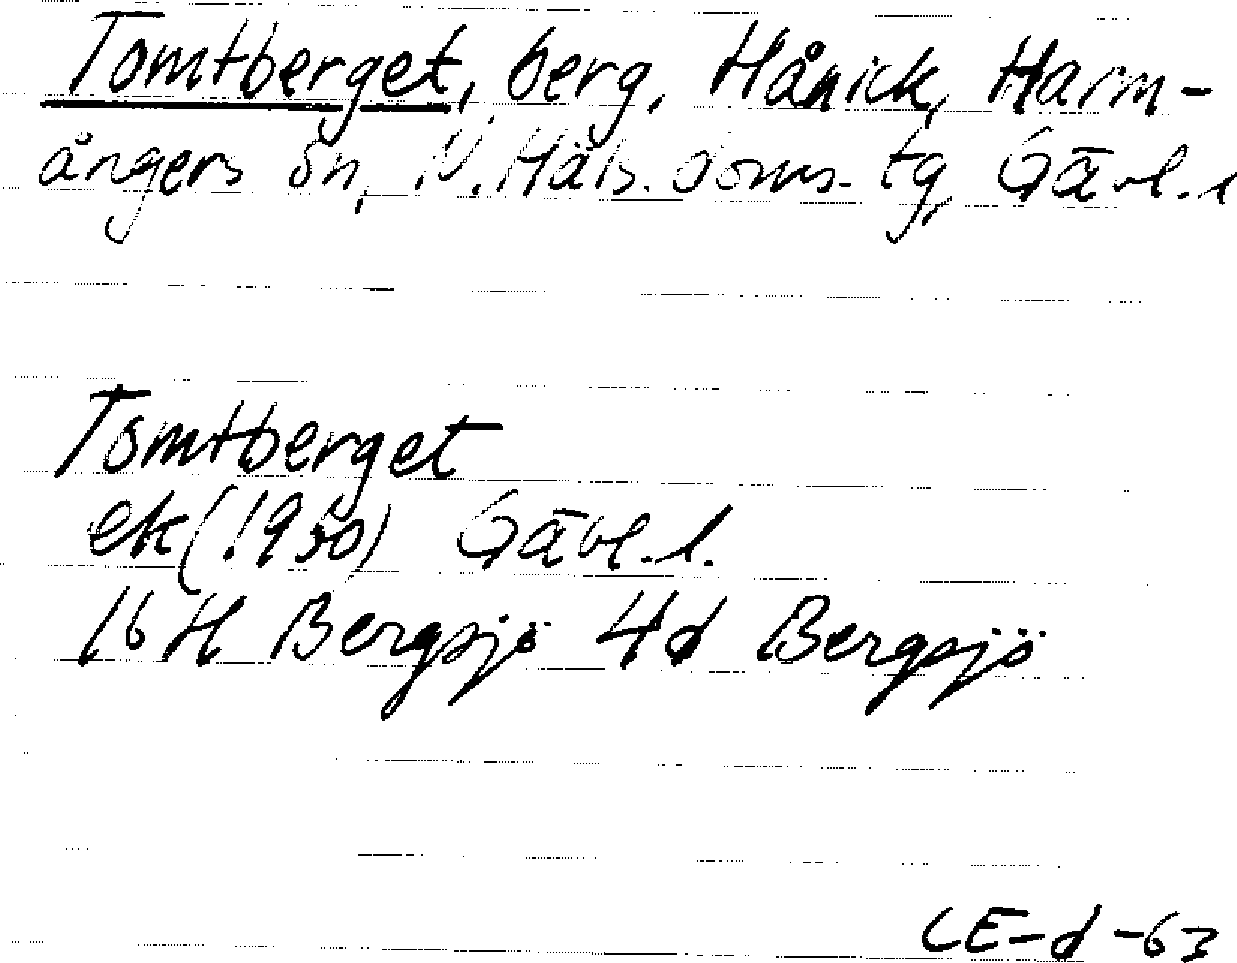 Tomtberget, berg, Hånick, Harm-
ångers sn, N. Häls. doms. tg, Gävl. l
Tomtberget
ek (1950) Gävl. l.
16 H Bergsjö 4d Bergsjö
CE-d-63